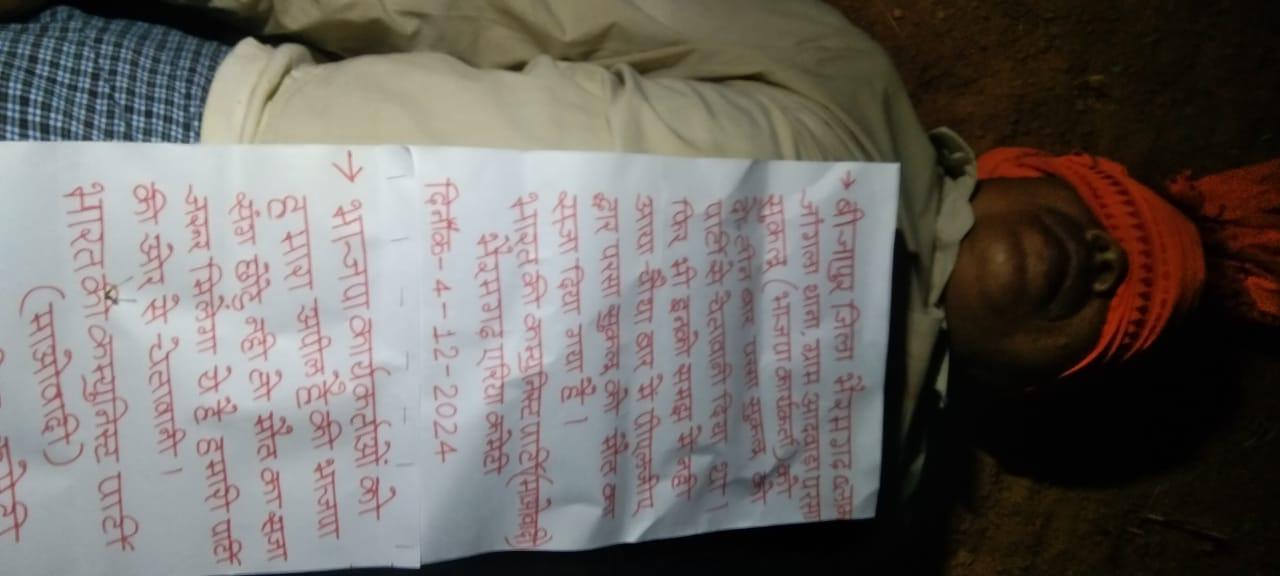 → बीजापुर जिला भैरमगढ़ ब्लाक
जांगला थाना, ग्राम परसा
सुकलू (भाजपा कार्यकर्ता) को
दो-तीन बार परसा सुकलू को
पार्टि से चेतावनी दिया था।
फिर भी इनको समझ में नही
आया चौथा बार में पीएलजीए
द्वार परसा सुकलू को मौत का
सजा दिया गया है।
भारत की कम्युनिस्ट पार्टि (माओवादी)
भैरमगढ़ एरिया कमेटी
दिनाँक- 4-12-2024
→ भाजपा कार्यकर्ताओं को
हमार अपील है की भाजपा
संघ छोडु नही तो मौत का सजा
जरूर मिलेगा ये है हमारी पार्टि
की ओर से चेतावनी।
भारत की कम्युनिस्ट पार्टि
(माओवादी)
कमेटी